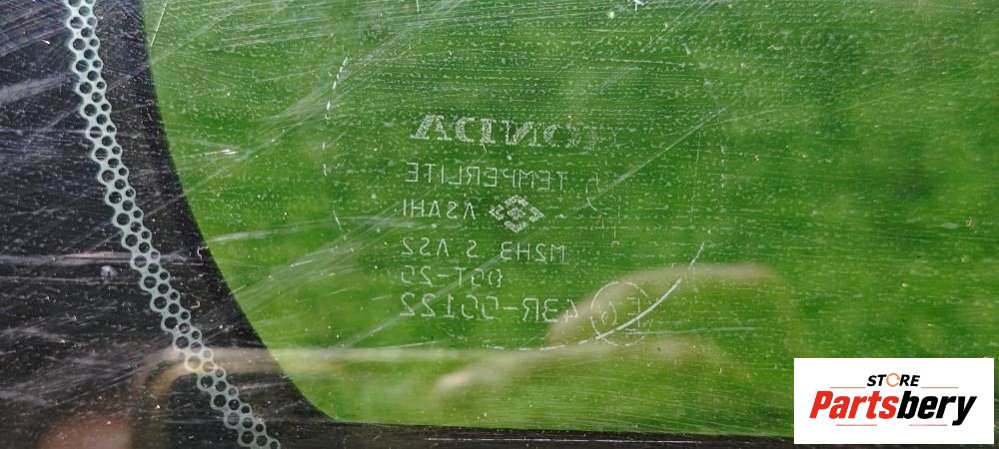 HONDA
TEMPERLITE
ASAHI
M2H3 S AS2
DOT-20
E6 43R-00122
STORE
Partsbery